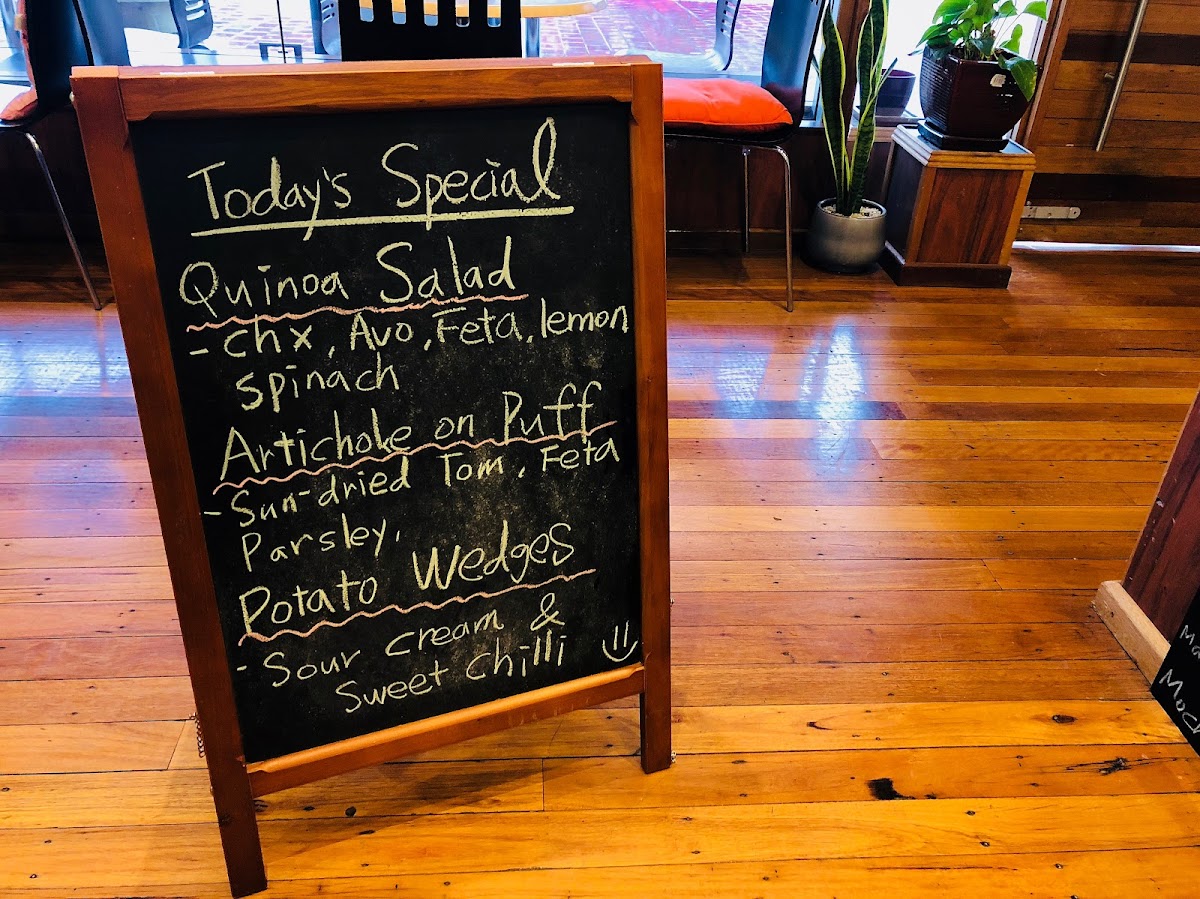 Today's Special
Quinoa Salad
- chx, Avo, Feta, lemon
spinach
Artichoke on Puff
- Sun-dried Tom, Feta
Parsley,
Potato Wedges
- Sour cream &
Sweet chilli